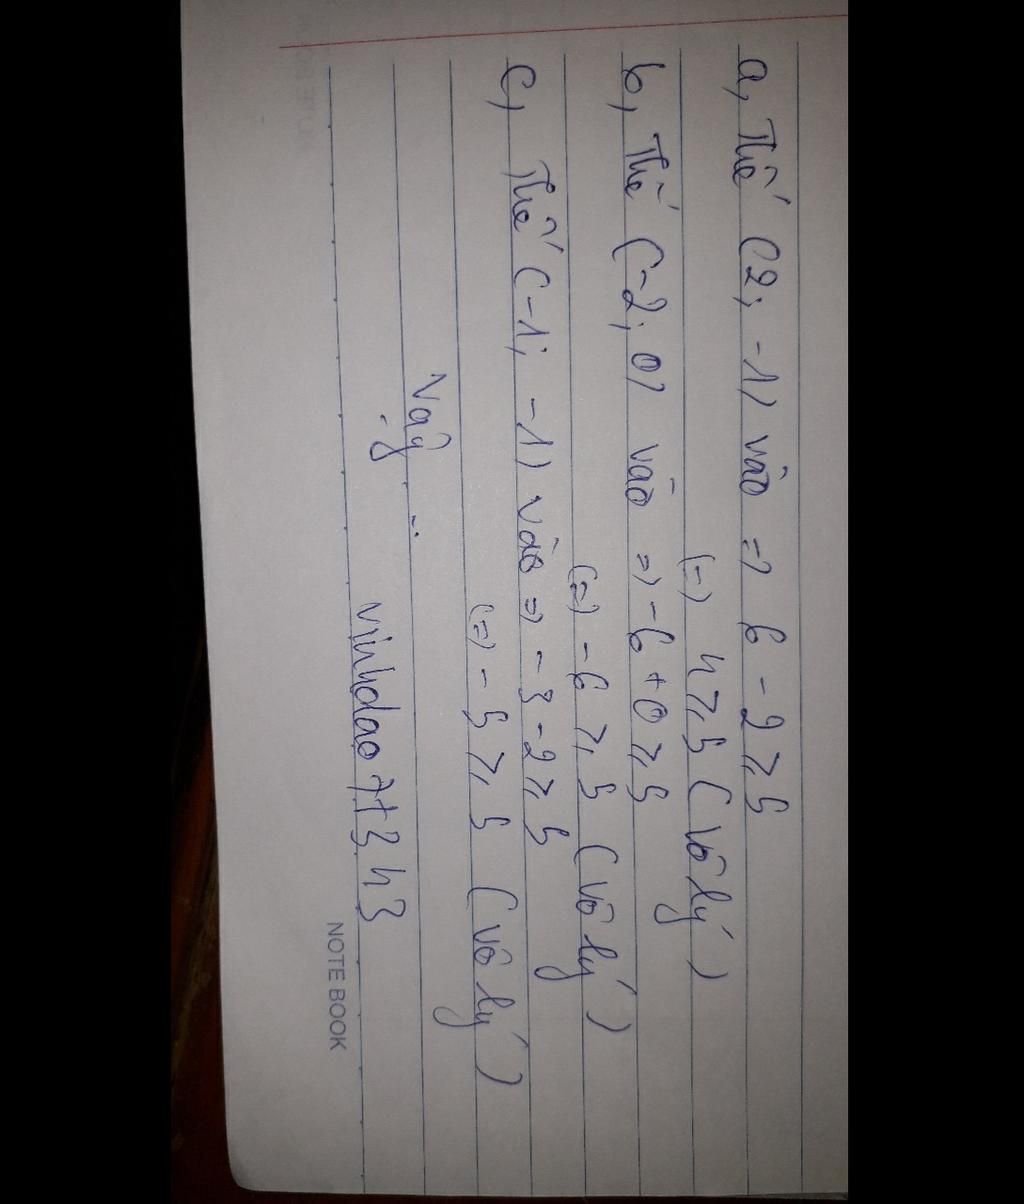 a, Thế (2; -1) vào => 6 - 2 ≥ 5
(=) 4 ≥ 5 (vô lý)
b, Thế (-2; 0) vào => -6 + 0 ≥ 5
(=) -6 ≥ 5 (vô lý)
c, Thế (-1; -1) vào => -3 -2 ≥ 5
(=) -5 ≥ 5 (vô lý)
Vậy ...
vinhdao7+343
NOTE BOOK